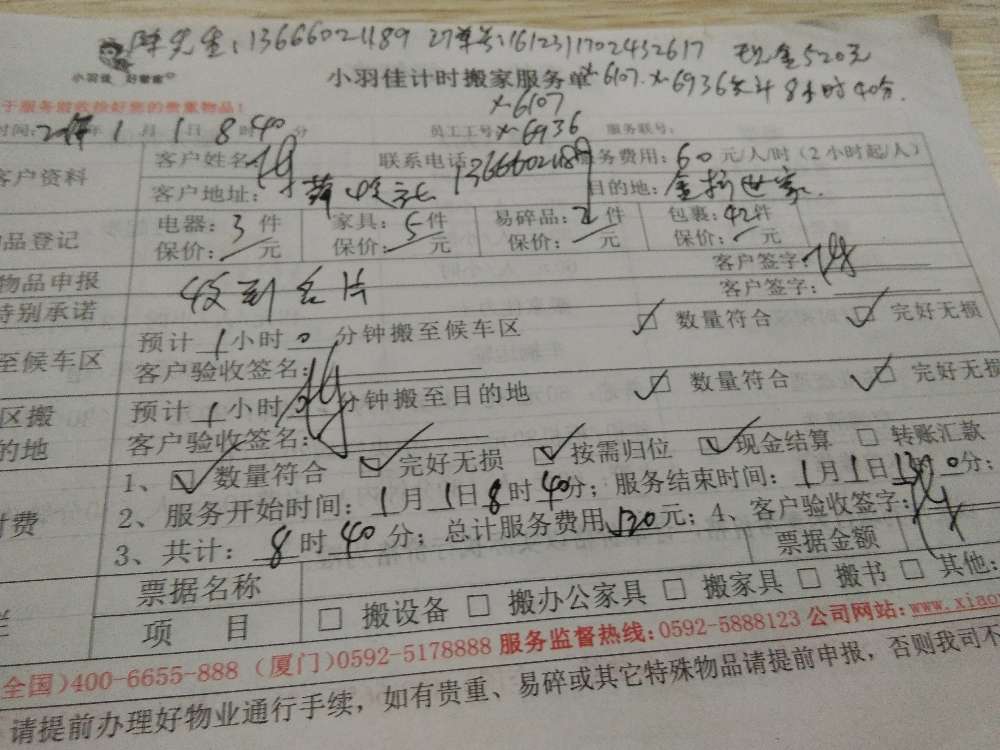 陈先生:13666021189 订单号:161231702432617 现金520元
小羽佳 好管家
小羽佳计时搬家服务单 X-6107. X-6936共计8小时40分.
于服务验收捡好您的贵重物品!
X-6107
时间: 年1月1日8时40分 员工工号:X-6936 服务联号:
客户资料 客户姓名: 联系电话:13666021189 服务费用:60元/人/时(2小时起/人)
客户地址: 目的地:金扬世家.
品登记 电器:3件 家具:5件 易碎品:2件 包裹:42件
保价:/元 保价:/元 保价:/元 保价:/元
物品申报 客户签字:
特别承诺 收到名片 客户签字:
至候车区 预计1小时0分钟搬至候车区 ☑数量符合 ☑完好无损
客户验收签名:
区搬 预计1小时0分钟搬至目的地 ☑数量符合 ☑完好无损
的地 客户验收签名:
1、☑数量符合 ☑完好无损 ☑按需归位 ☑现金结算 □转账汇款
付费 2、服务开始时间:1月1日8时40分;服务结束时间:1月1日13时0分;
3、共计:8时40分;总计服务费用520元;4、客户验收签字:
票据名称 票据金额
栏 项 目 □搬设备 □搬办公家具 □搬家具 □搬书 □其他:
全国)400-6655-888 (厦门)0592-5178888 服务监督热线:0592-5888123 公司网站:www.xiao
请提前办理好物业通行手续,如有贵重、易碎或其它特殊物品请提前申报,否则我司不